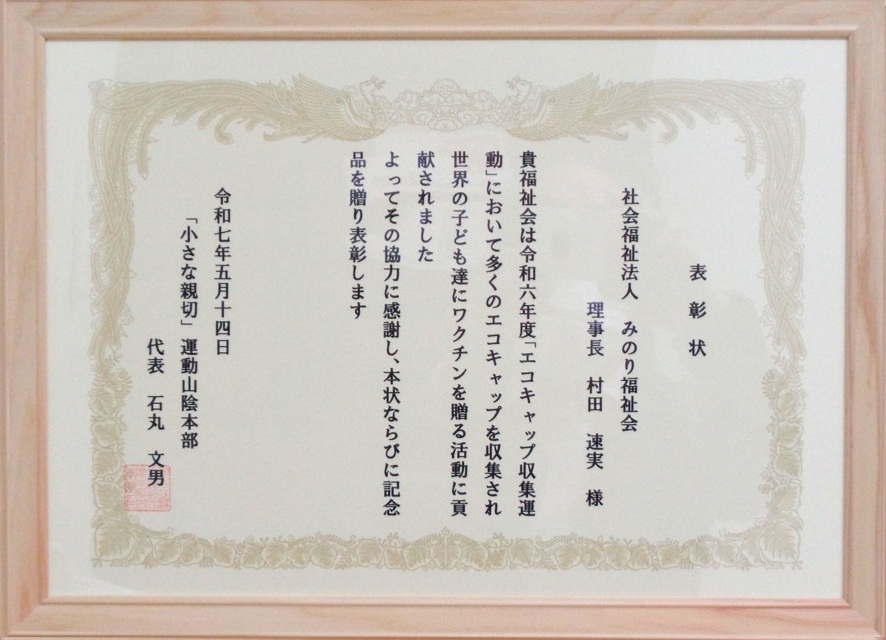 表彰状
社会福祉法人 みのり福祉会
理事長 村田 速実 様
貴福祉会は令和六年度「エコキャップ収集運
動」において多くのエコキャップを収集され
世界の子ども達にワクチンを贈る活動に貢
献されました
よってその協力に感謝し、本状ならびに記念
品を贈り表彰します
令和七年五月十四日
「小さな親切」運動山陰本部
代表 石丸 文男